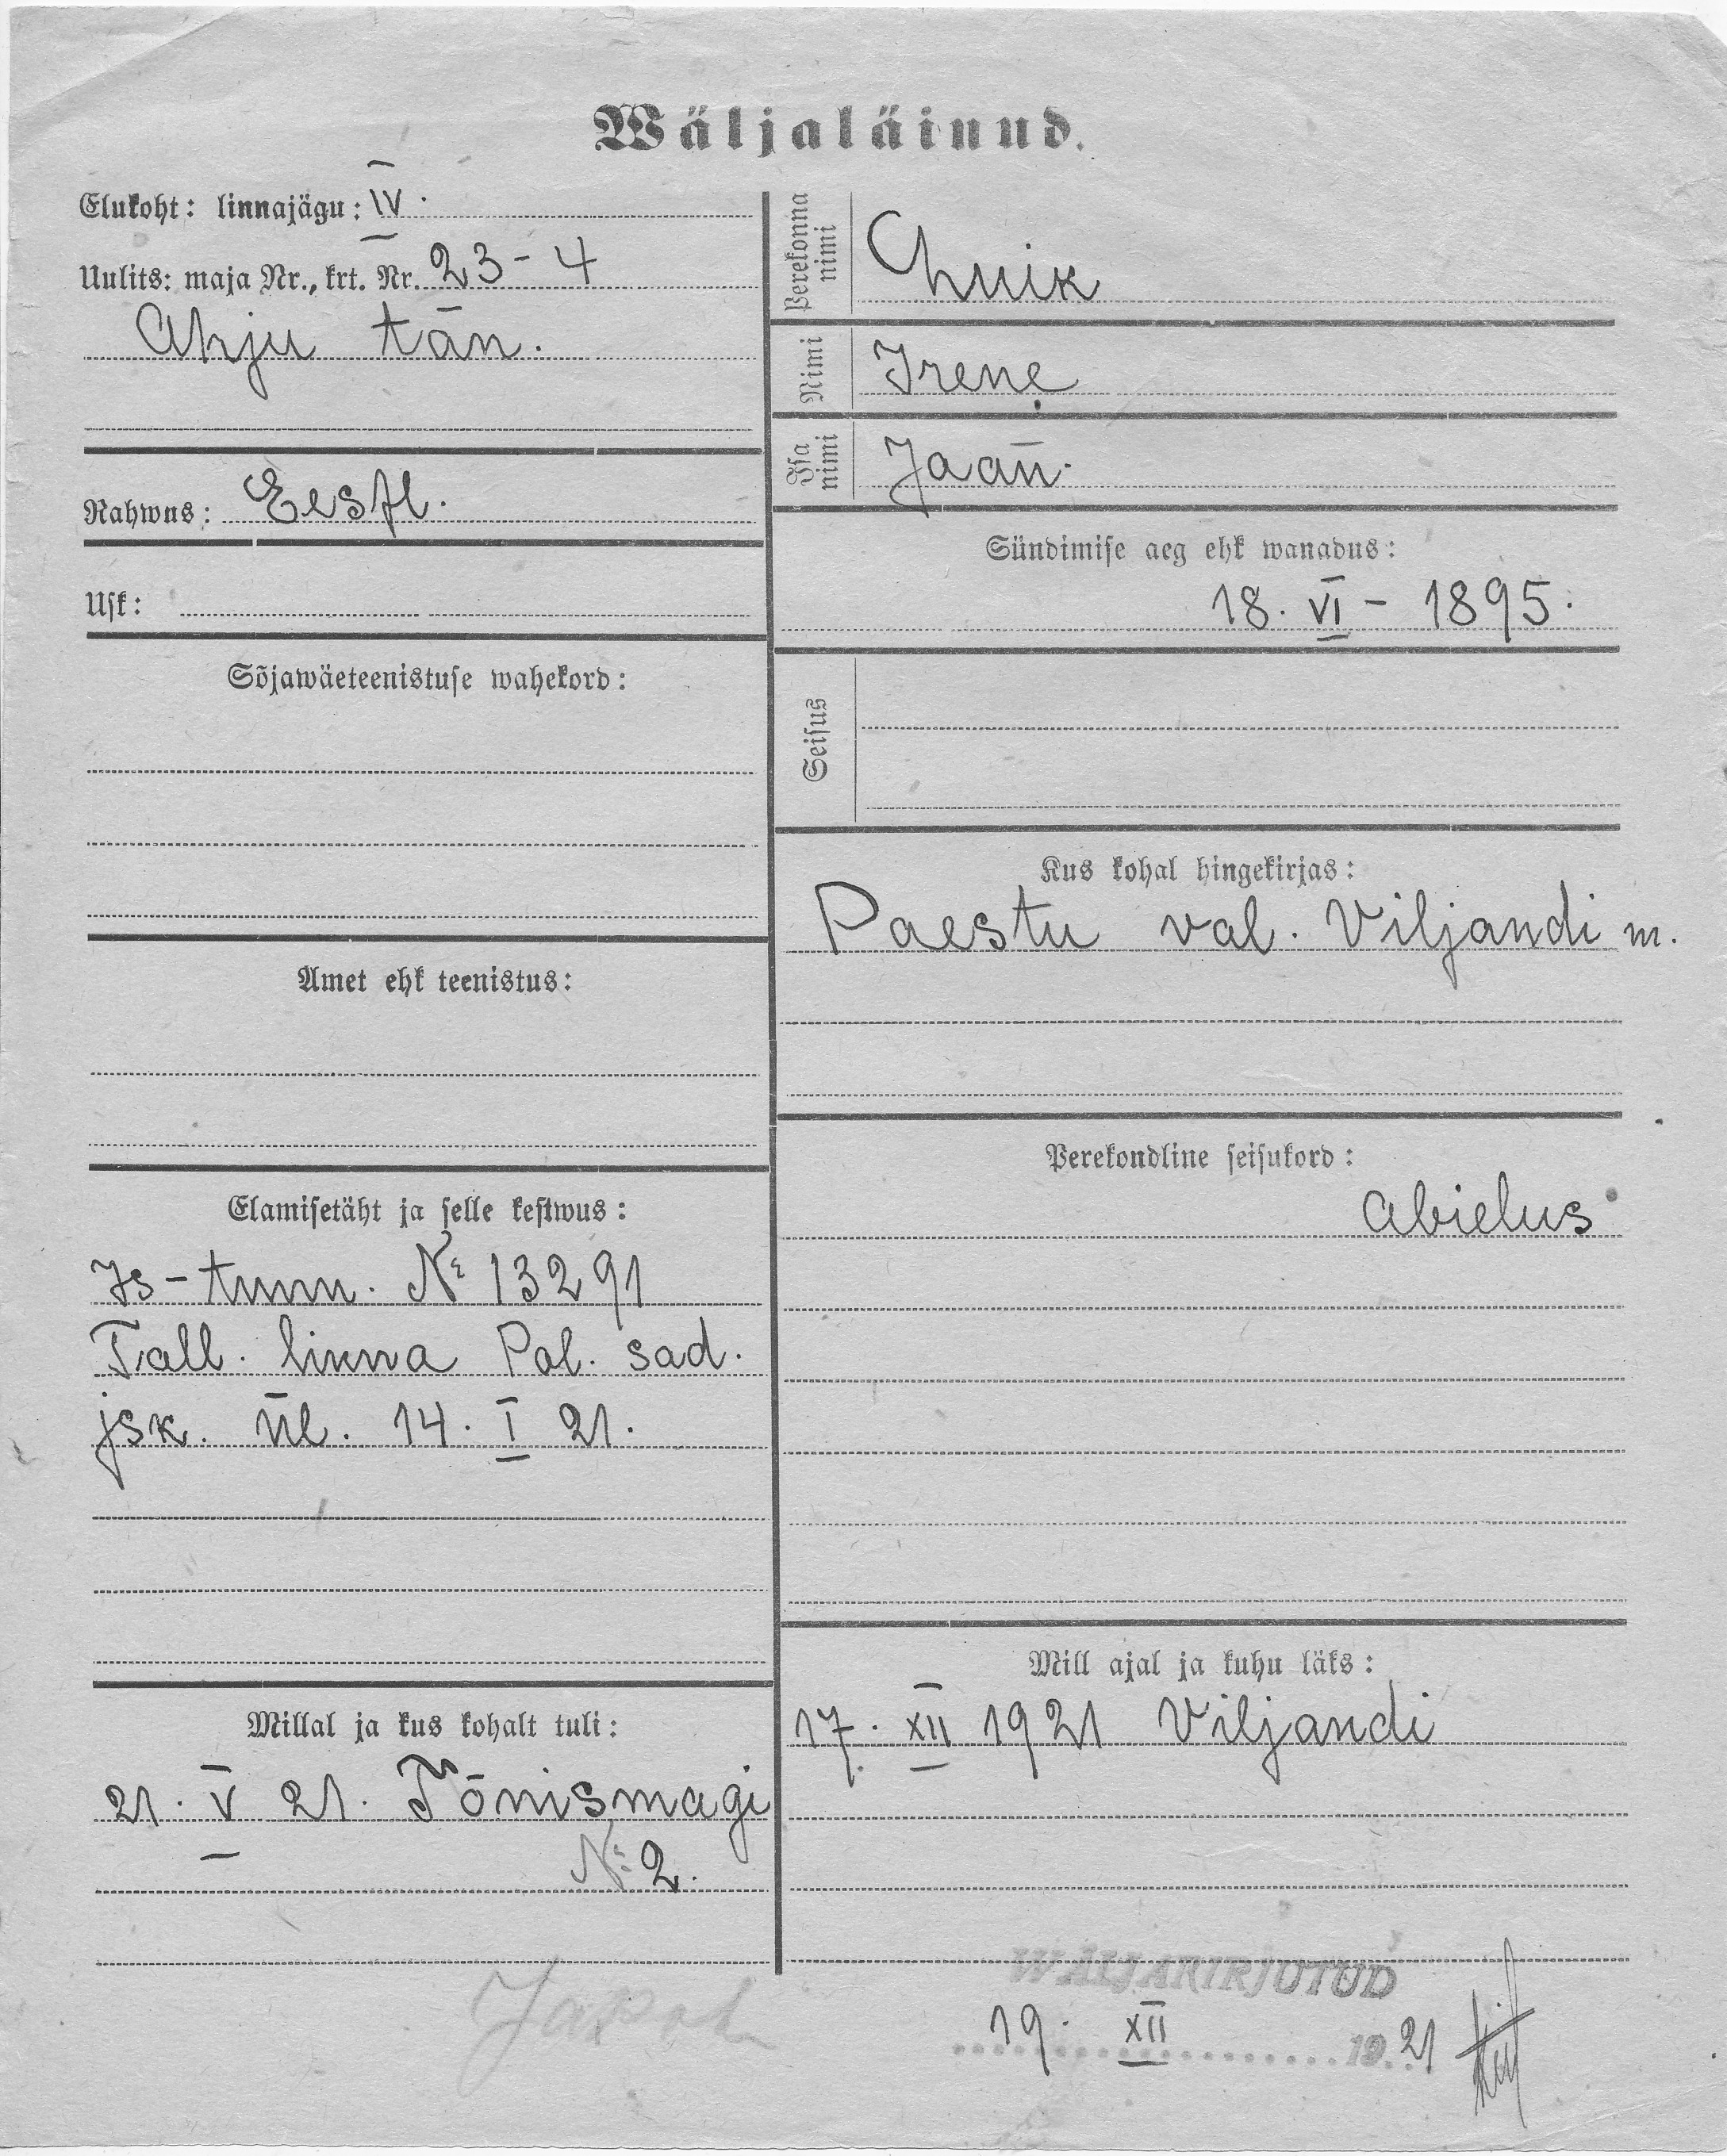 Wäljaläinud.
Elukoht: linnajägu: IV.
Uulits: maja Nr., krt. Nr. 23 - 4
Ahju tän.
Rahwus: Eestl.
Usk:
Sõjawäeteenistuse wahekord:
Amet ehk teenistus:
Elamisetäht ja selle kestwus:
Is-tunn. № 13291
Tall. linna Pol. sad.
jsk. ül. 14. I 21.
Millal ja kus kohalt tuli:
21. V 21. Tõnismagi
№ 2.
Perekonna nimi
Nimi Irene
Isa nimi Jaan.
Sündimise aeg ehk wanadus:
18. VI - 1895.
Seisus
Kus kohal hingekirjas:
Paestu val. Viljandi m.
Perekondline seisukord:
abielus
Mill ajal ja kuhu läks:
17. XII 1921 Viljandi
WÄLJAKIRJUTUD
19. XII 1921